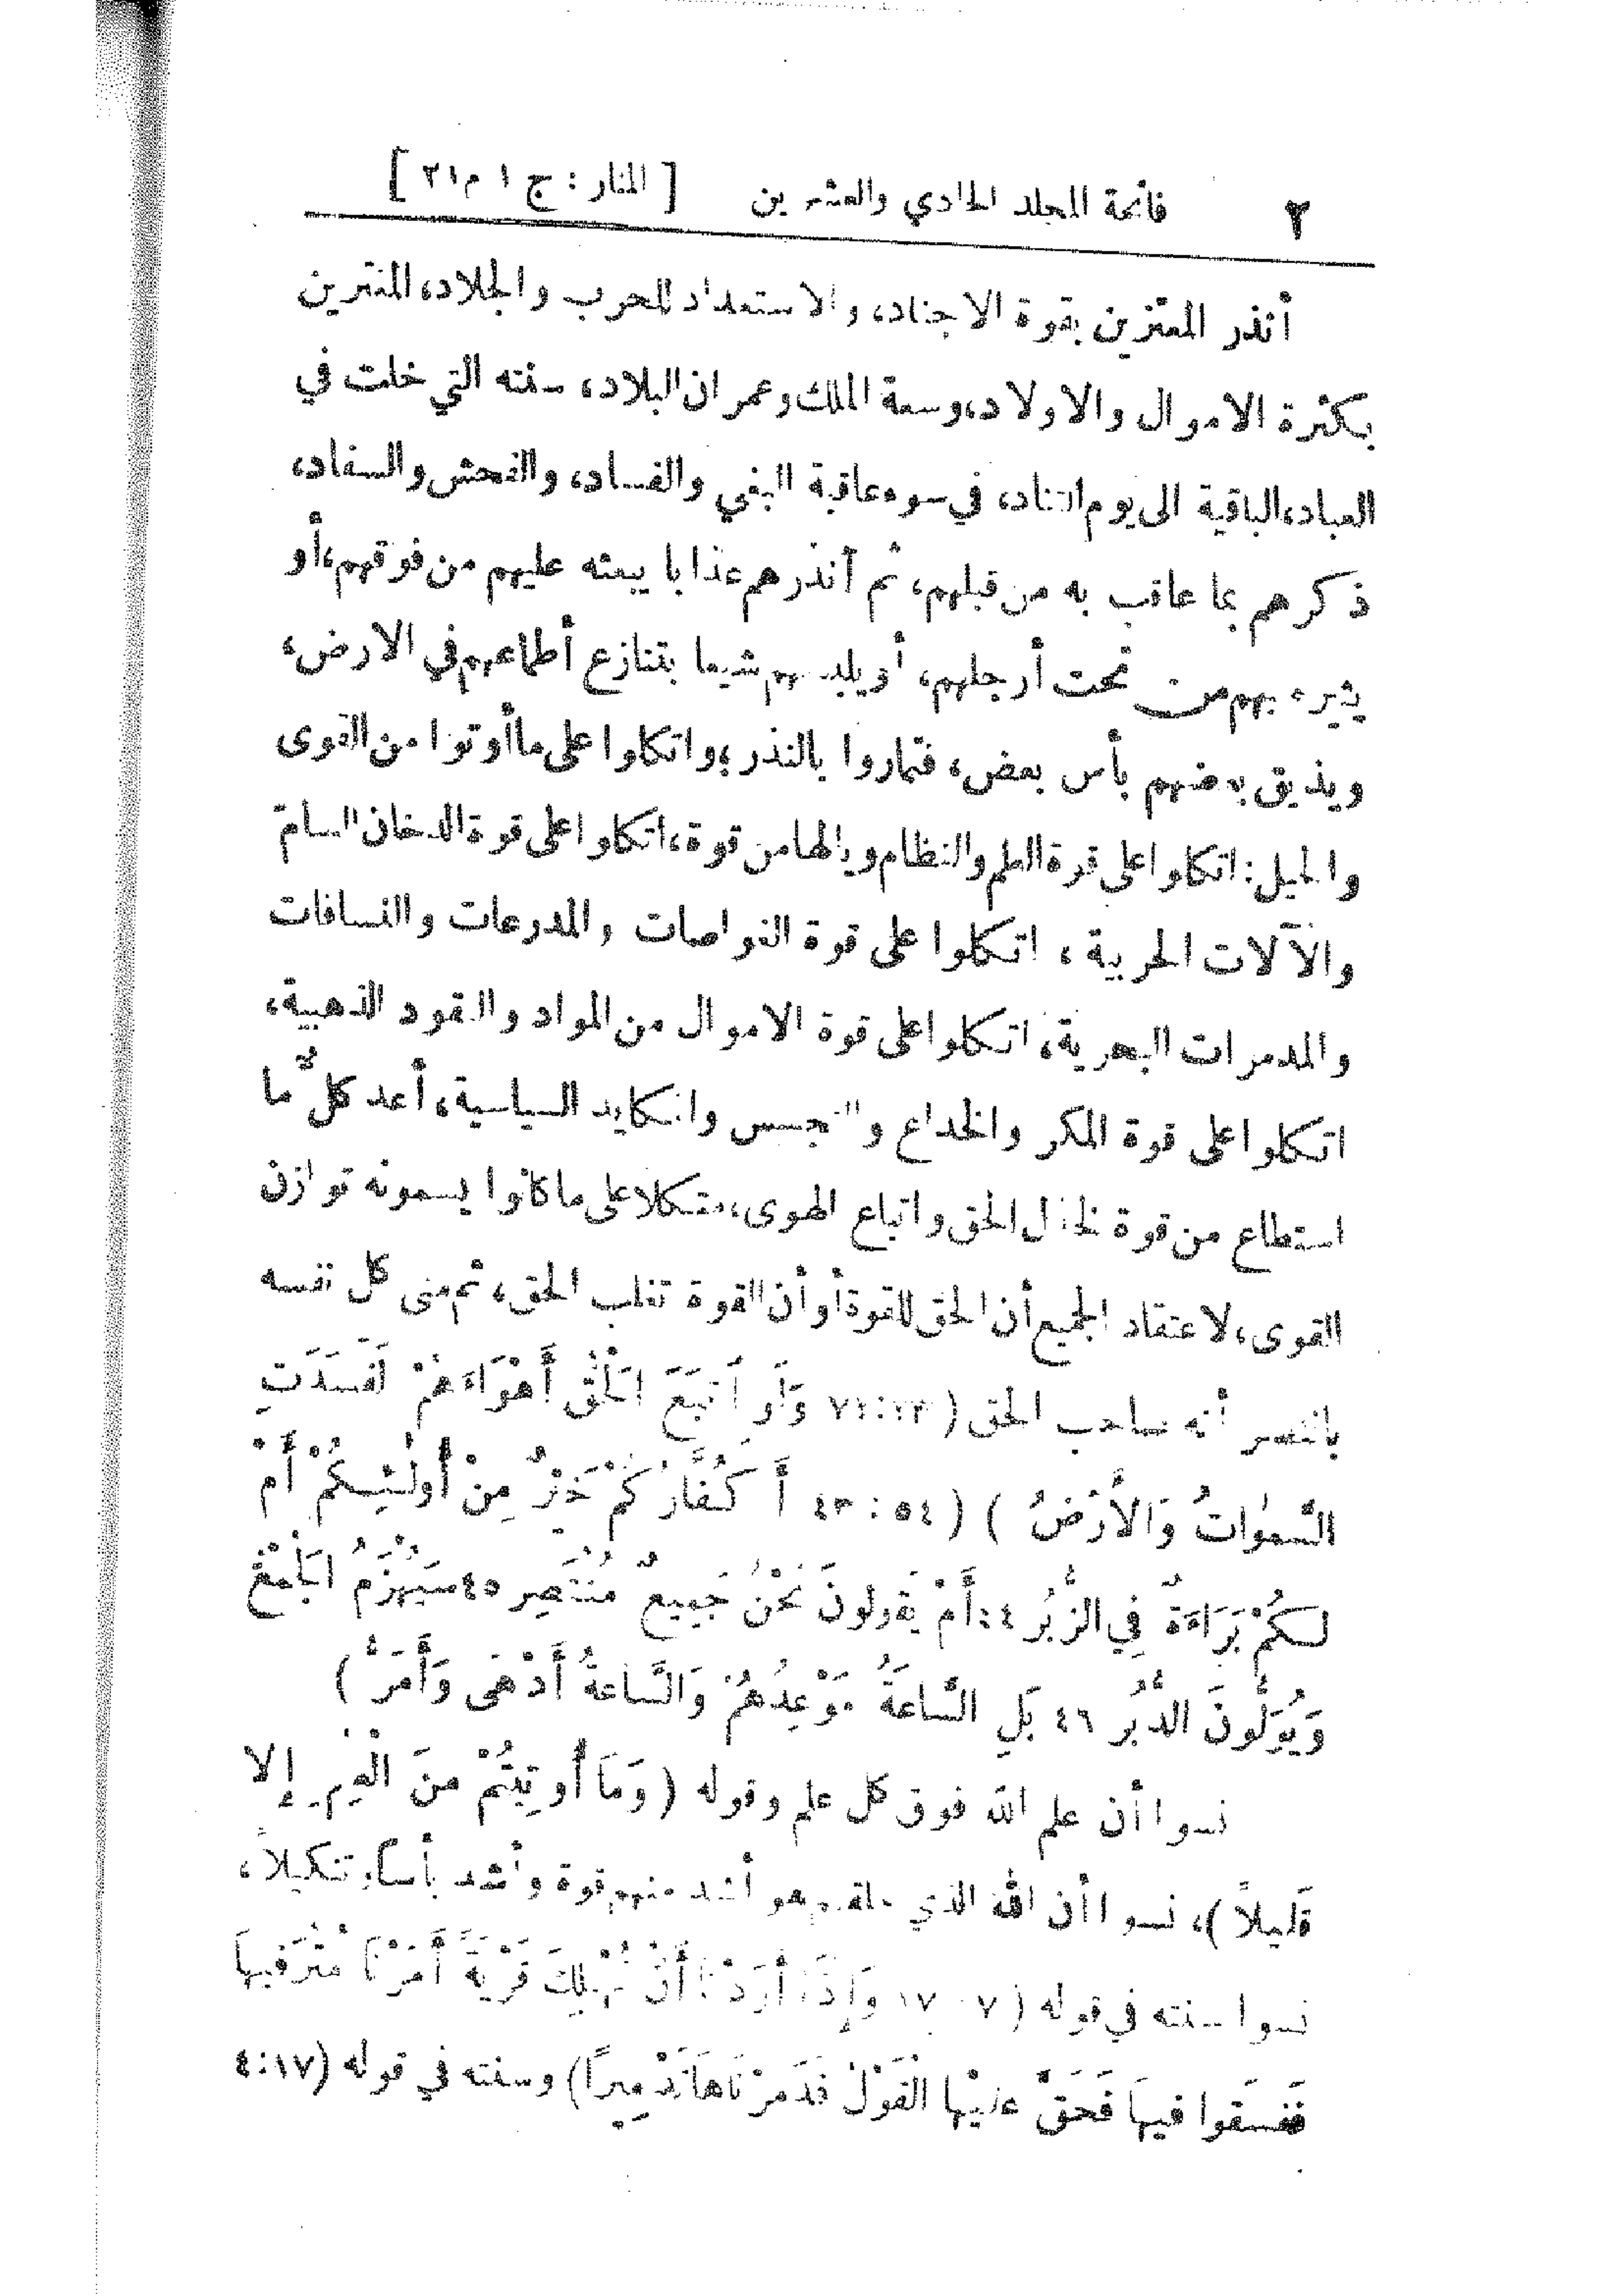 ٢ فاتحة المجلد الحادي والعشرين [ المنار : ج ١ م ٢١ ]
أنذر المعتزين بقوة الاجناد، والاستعداد للحرب والجلاد، المغترين
بكثرة الاموال والاولاد، وسعة الملك وعمران البلاد، سنته التي خلت في
العباد، الباقية الى يوم التناد، في سوء عاقبة البغي والفساد، والفحش والسفاد،
ذكرهم بما عاقب به من قبلهم، ثم أنذرهم عذابا يبعثه عليهم من فوقهم، أو
يثيره بهم من تحت أرجلهم، أو يلبسهم شيعا بتنازع أطماعهم في الارض،
ويذيق بعضهم بأس بعض، فتماروا بالنذر، واتكلوا على ما أوتوا من القوى
والحيل: اتكلوا على قوة العلم والنظام ويالها من قوة، اتكلوا على قوة الدخان السامّ
والآلات الحربية ، اتكلوا على قوة الغواصات والمدرعات والنسافات
والمدمرات البحرية، اتكلوا على قوة الاموال من المواد والنقود الذهبية،
اتكلوا على قوة المكر والخداع والتجسس والمكايد السياسية، أعد كلٌّ ما
استطاع من قوة لخذل الحق واتباع الهوى، متكلا على ما كانوا يسمونه توازن
القوى، لاعتقاد الجميع أن الحق للقوة أو أن القوة تغلب الحق، ثم منى كل نفسه
بالنصر أنه صاحب الحق ( ٢٣:٧١ وَلَوِ اتَّبَعَ الْحَقُّ أَهْوَاءَهُمْ لَفَسَدَتِ
السَّمٰوَاتُ وَالأَرْضُ ) ( ٥٤ : ٤٣ أَ كُفَّارُكُمْ خَيْرٌ مِنْ أُولٰئِكُمْ أَمْ
لَكُمْ بَرَاءَةٌ فِي الزُّبُر ٤٤ أَمْ يَقُولُونَ نَحْنُ جَمِيعٌ مُنْتَصِر ٤٥ سَيُهْزَمُ الْجَمْعُ
وَيُوَلُّونَ الدُّبُر ٤٦ بَلِ السَّاعَةُ مَوْعِدُهُمْ وَالسَّاعَةُ أَدْهَى وَأَمَرّ )
نسوا أن علم الله فوق كل علم وقوله ( وَمَا أُوتِيتُمْ مِنَ الْعِلْمِ إِلا
قَلِيلاً )، نسوا أن الله الذي خلقهم هو أشد منهم قوة وأشد بأسا وتنكيلاً،
نسوا سنته في قوله ( وَإِذَا أَرَدْنَا أَنْ نُهْلِكَ قَرْيَةً أَمَرْنَا مُتْرَفِيهَا
فَفَسَقُوا فِيهَا فَحَقَّ عَلَيْهَا الْقَوْلُ فَدَمَّرْنَاهَا تَدْمِيرًا) وسنته في قوله (١٧:٤